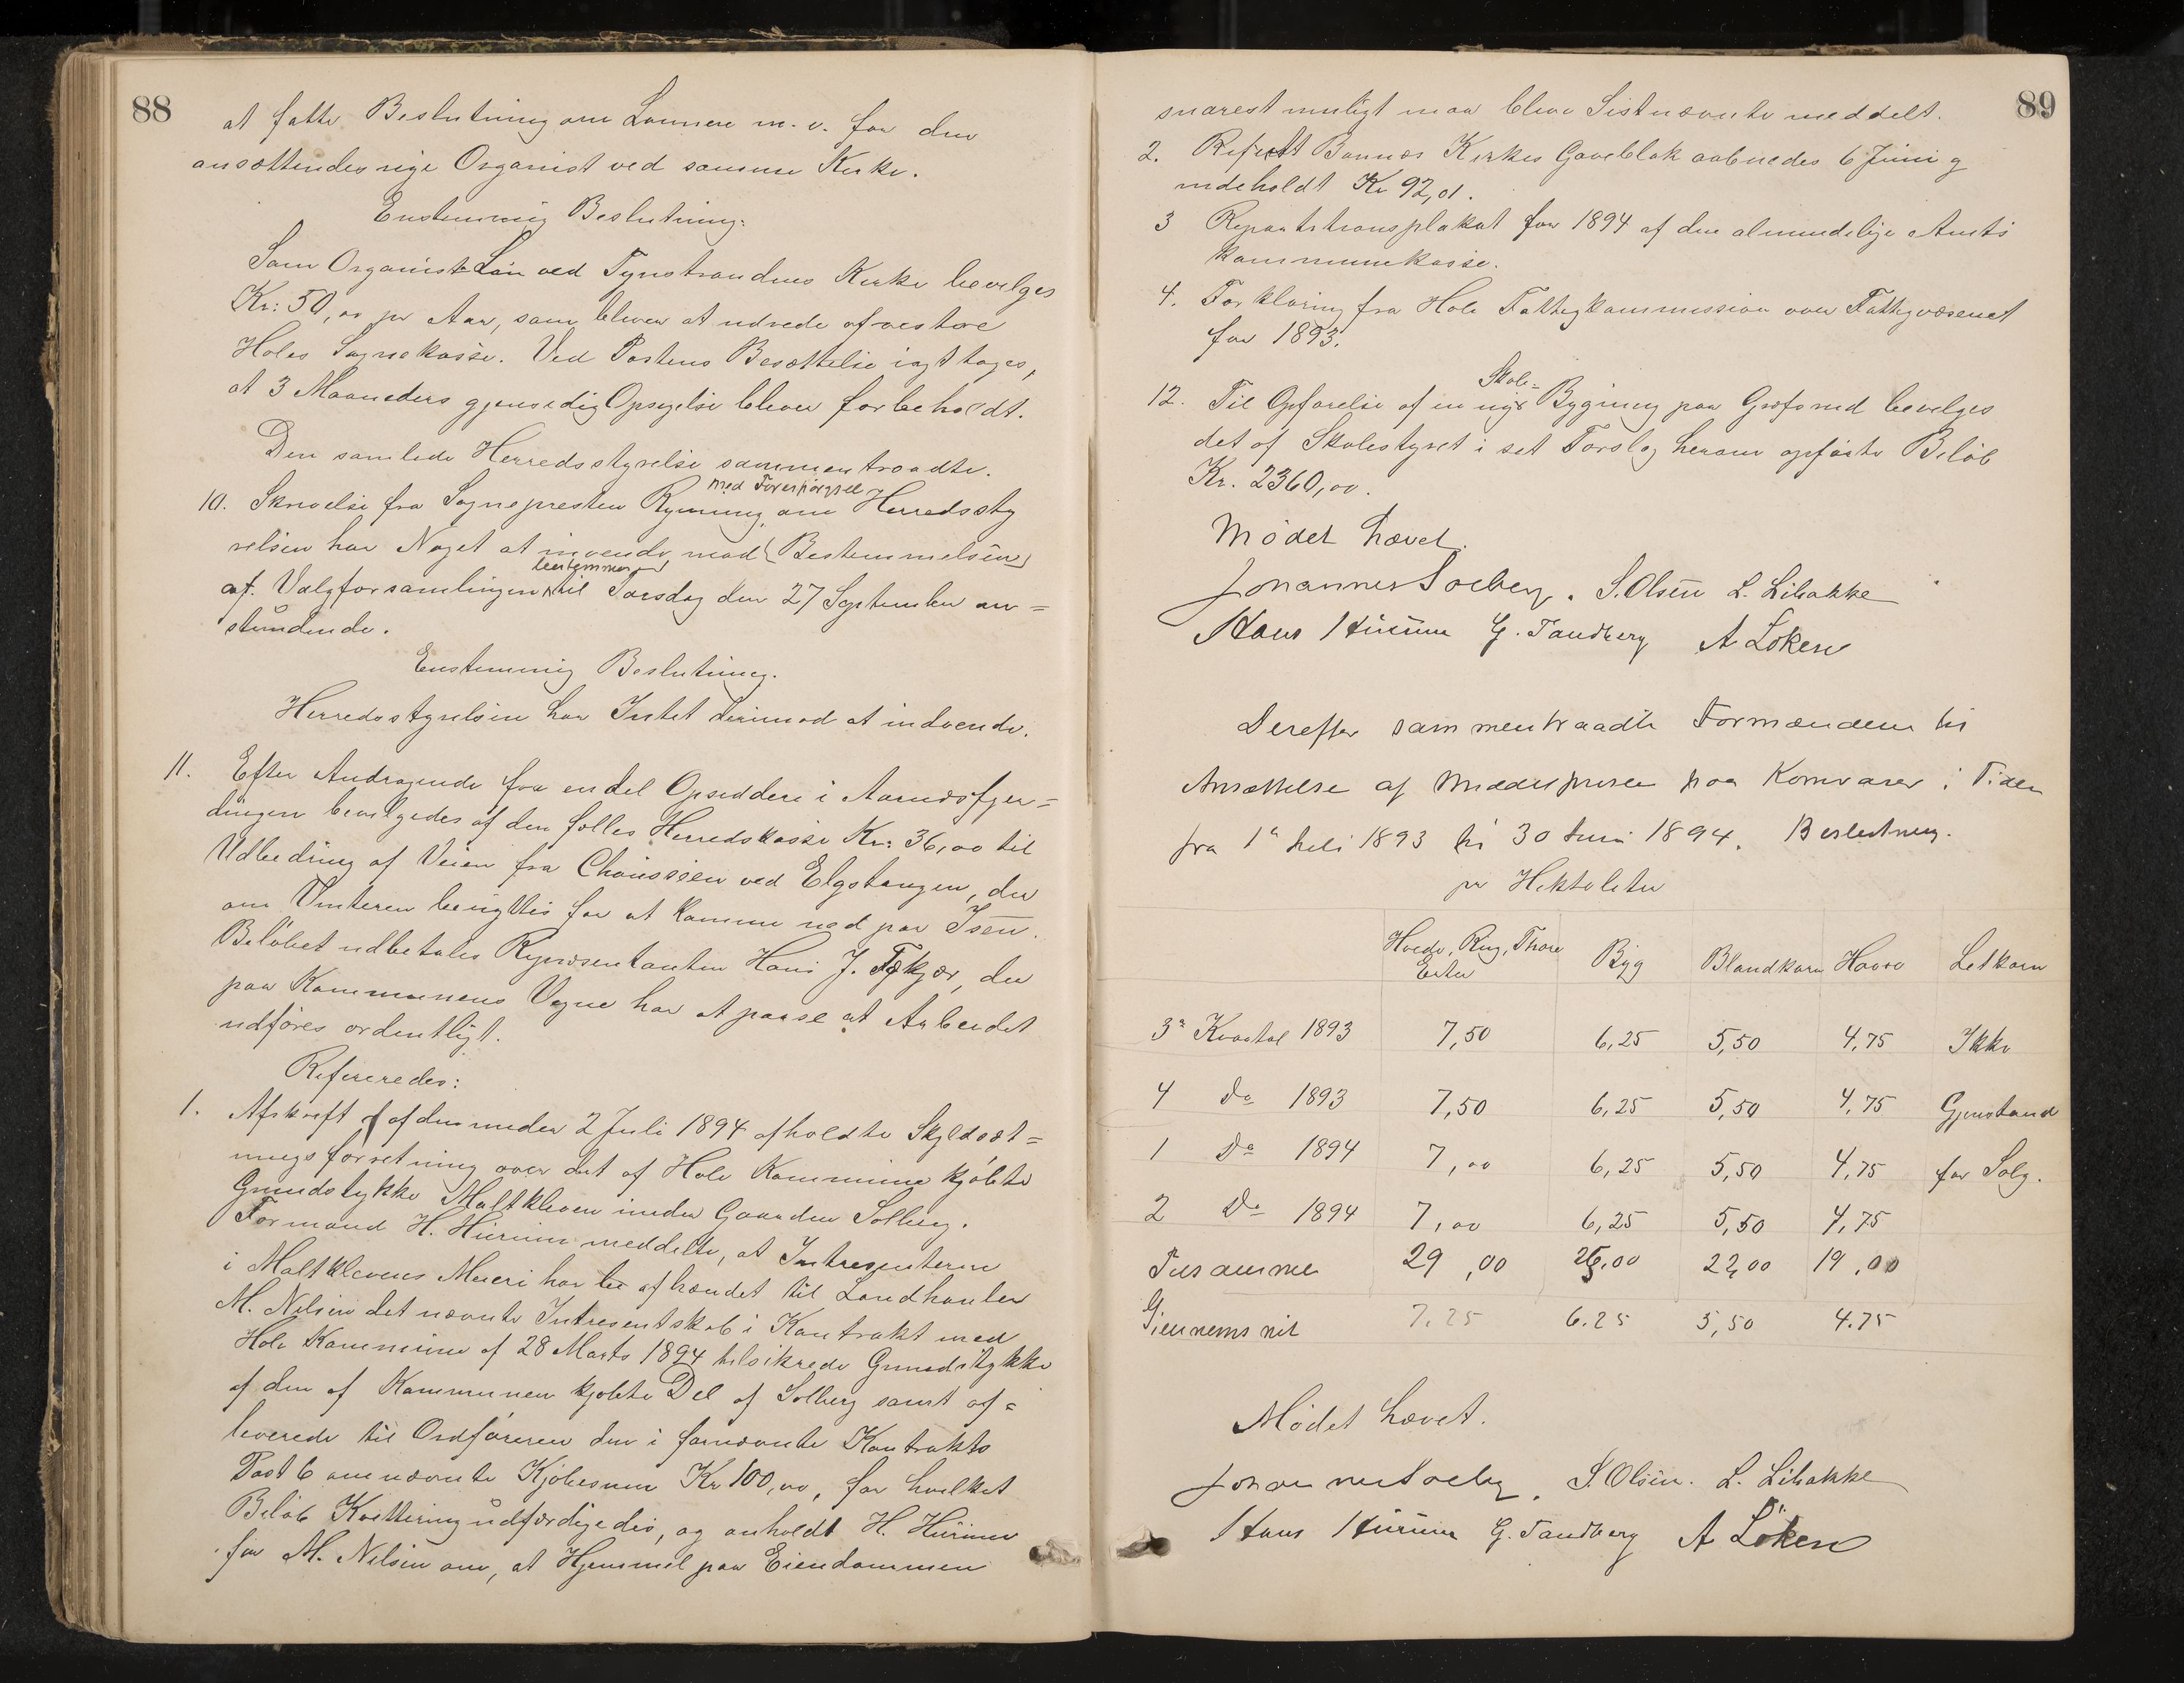 88
at fatte Beslutning om Lønnen m. v. for den
ansættendes nye Organist ved samme Kirke.
Enstemmig Beslutning:
Som Organist Løn ved Tyristrandens Kirke bevilges
Kr: 50,00 pr Aar, som bliver at udrede af vestre
Holes Sognekasse. Ved Postens Besættelse iagttages,
at 3 Maaneders gjensidig Opsigelse bliver forbeholdt.
Den samlede Herredsstyrelse sammentraadte.
med Forespørgsel
10. Skrivelse fra Sognepresten Rynning om Herredssty
relsen har Noget at invende mod Bestemmelsen
bestemmes
af Valgforsamlingen til Torsdag den 27 September an=
stundende.
Enstemmig Beslutning.
Herredsstyrelsen har Intet derimod at indvende.
11. Efter Andragende fra en del Opsiddere i Aarnesfjer=
dingen bevilgedes af den fælles Herredskasse Kr: 36,00 til
Udbedring af Veien fra Chausseen ved Elgstangen, der
om Vinteren benyttes for at komme ned paa Isen.
Beløbet udbetales Repræsentanten Hans J. Fekjær, der
paa Kommunens Vegne har at paase at Arbeidet
udføres ordentligt.
Refereredes:
1. Afskrift af den under 2 Juli 1894 afholdte Skyldsæt=
ningsforretning over det af Hole Kommune kjøbte
Grundstykke Maltkleven under Gaarden Solberg.
Formand H. Hurum meddelte, at Interesenterne
i Maltklevens Meieri har afhændet til Landhandler
M. Nilsen det nævnte Intresentskab i Kontrakt med
Hole Kommune af 28 Marts 1894 tilsikrede Grundstykke
af den af Kommunen kjøbte Del af Solberg samt af=
leverede til Ordføreren den i fornævnte Kontrakts
Post 6 omnævnte Kjøbesum Kr 100,00, for hvilket
Beløb Kvittering udfærdigedes, og anholdt H. Hurum
for M. Nilsen om, at Hjemmel paa Eiendommen
89
snarest muligt maa blive Sistnævnte meddelt.
2. Bønsnes Kirkes Gaveblok aabnedes 6 Juni g
indeholdt Kr 92,01.
3 Repartitionsplakat for 1894 af den almindelige Amts
kommunekasse.
4. Forklaring fra Hole Fattigkommission over Fattigvæsenet
for 1893.
Skole=
12. Til Opførelse af en ny Bygning paa Græfsrud bevilges
det af Skolestyret i set Forslag herom opførte Beløb
Kr. 2360,00.
Mødet hævet.
Johannes Solberg. S. Olsen L. Libakke
Hans Hurum G. Tandberg A Løken
Derefter sammentraadte Formændene til
Ansættelse af Middelprisen paa Kornvarer i Tiden
fra 1ste Juli 1893 til 30 Juni 1894. Beslutning.
pr Hektoliter
Hvede, Rug, Erter Byg Blandkorn Havre Letkorn
3de Kvartal 1893 7,50 6,25 5,50 4,75 Ikke
4 do 1893 7,50 6,25 5,50 4,75 Gjenstand
1 Do 1894 7,00 6,25 5,50 4,75 for Salg.
2 Do 1894 7,00 6,25 5,50 4,75
Tilsammen 29,00 25,00 22,00 19,00
Giennemsnit 7.25 6.25 5,50 4.75
Mødet hævet.
Johannes Solberg. S. Olsen. L. Libakke
Hans Hurum G. Tandberg A Løken